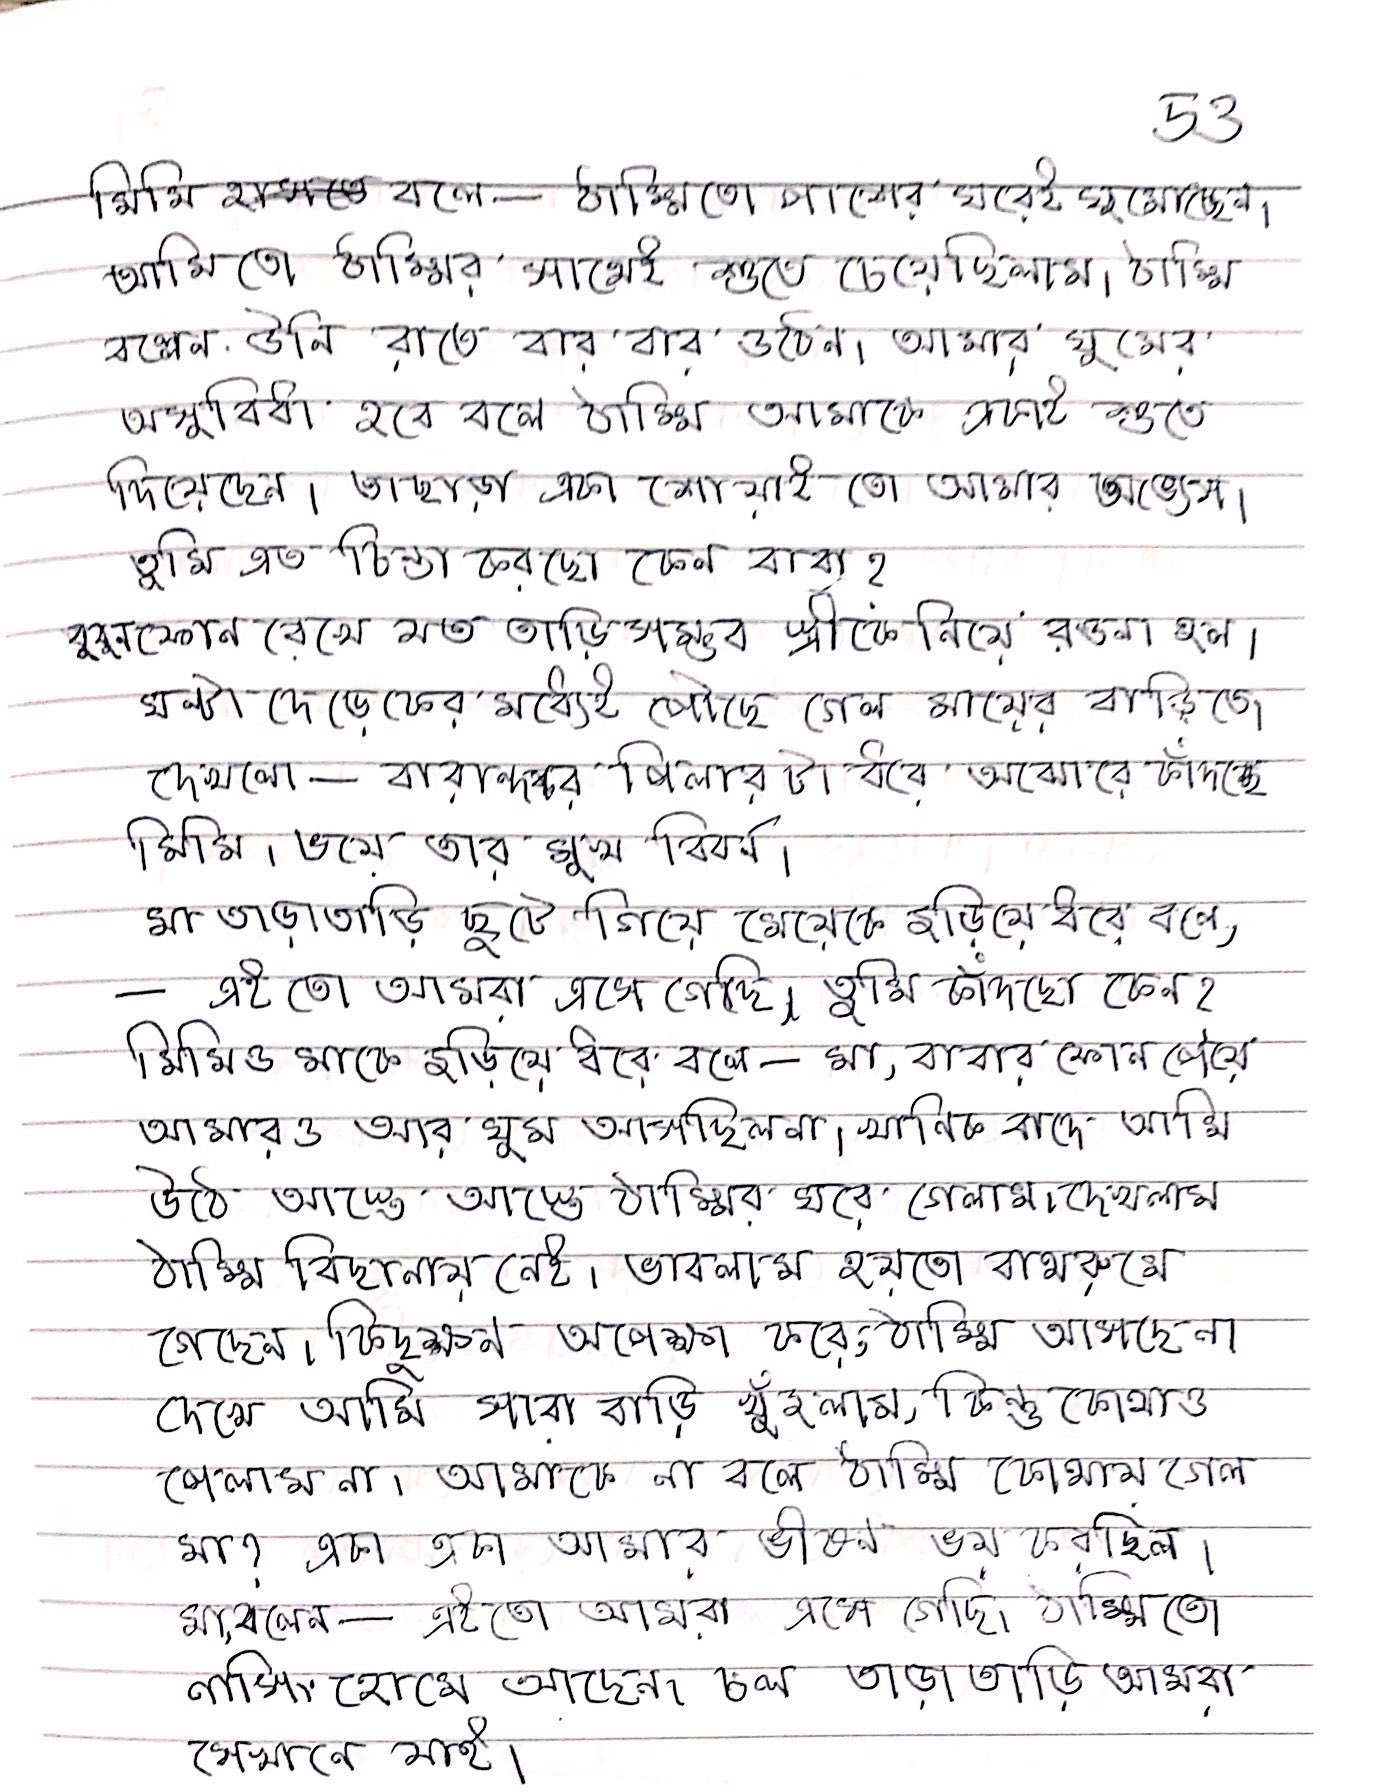 53
মিমি বলে — ঠাম্মি তো পাশের ঘরেই ঘুমোচ্ছেন।
আমি তো ঠাম্মির সাথেই শুতে চেয়েছিলাম। ঠাম্মি
বল্লেন উনি রাতে বার বার ওঠেন। আমার ঘুমের
অসুবিধা হবে বলে ঠাম্মি আমাকে একাই শুতে
দিয়েছেন। তাছাড়া একা শোয়াই তো আমার অভ্যেস।
তুমি এত চিন্তা করছো কেন বাবা?
বুবুন ফোন রেখে যত তাড়ি সম্ভব স্ত্রীকে নিয়ে রওনা হল।
ঘন্টা দেড়েকের মধ্যেই পৌছে গেল মায়ের বাড়িতে।
দেখলো — বারান্দার পিলারটা ধরে অঝোরে কাঁদছে
মিমি। ভয়ে তার মুখ বিবর্ন।
মা তাড়াতাড়ি ছুটে গিয়ে মেয়েকে জড়িয়ে ধরে বলে,
— এই তো আমরা এসে গেছি, তুমি কাঁদছো কেন?
মিমিও মাকে জড়িয়ে ধরে বলে — মা, বাবার ফোন পেয়ে
আমারও আর ঘুম আসছিলনা। খানিক বাদে আমি
উঠে আস্তে আস্তে ঠাম্মির ঘরে গেলাম। দেখলাম
ঠাম্মি বিছানায় নেই। ভাবলাম হয়তো বাথরুমে
গেছেন। কিছুক্ষন অপেক্ষা করে, ঠাম্মি আসছে না
দেখে আমি সারা বাড়ি খুঁজলাম, কিন্তু কোথাও
পেলাম না। আমাকে না বলে ঠাম্মি কোথায় গেল
মা? একা একা আমার ভীষন ভয় করছিল।
মা বলেন — এইতো আমরা এসে গেছি। ঠাম্মি তো
নার্সিং হোমে আছেন। চল তাড়াতাড়ি আমরা
সেখানে যাই।